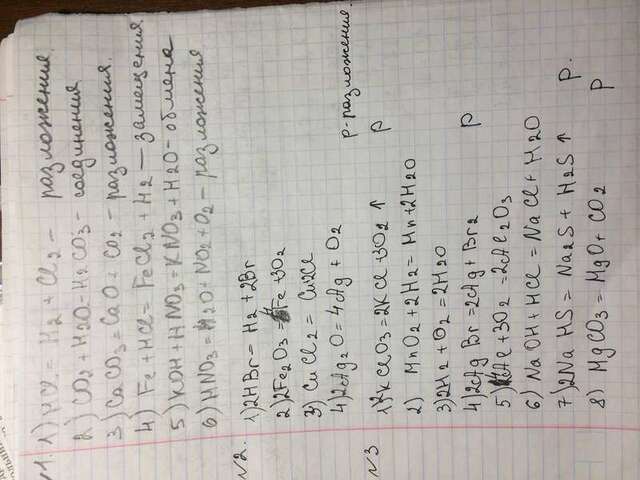 №1. 1) HCl = H2 + Cl2 - разложения.
2) CO2 + H2O = H2CO3 - соединения
3) CaCO3 = CaO + CO2 - разложения.
4) Fe + HCl = FeCl2 + H2 - замещения
5) KOH + HNO3 = KNO3 + H2O - обмена
6) HNO3 = H2O + NO2 + O2 - разложения
№2. 1) 2HBr = H2 + 2Br
2) 2Fe2O3 = Fe + 3O2
3) CuCl2 = Cu2Cl
4) 2Ag2O = 4Ag + O2
р-разложения.
№3 1) 2KClO3 = 2KCl + 3O2 ↑ р
2) MnO2 + 2H2 = Mn + 2H2O
3) 2H2 + O2 = 2H2O
4) 2AgBr = 2Ag + Br2 р
5) Al + 3O2 = 2Al2O3
6) NaOH + HCl = NaCl + H2O
7) 2NaHS = Na2S + H2S ↑ р.
8) MgCO3 = MgO + CO2 р